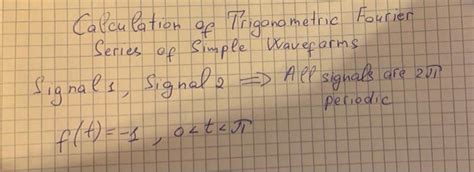 Calculation of Trigonometric Fourier
Series of Simple Waveforms
Signal 1, Signal 2 ⟹ All signals are 2π
periodic
f(t)=-1, 0<t<π